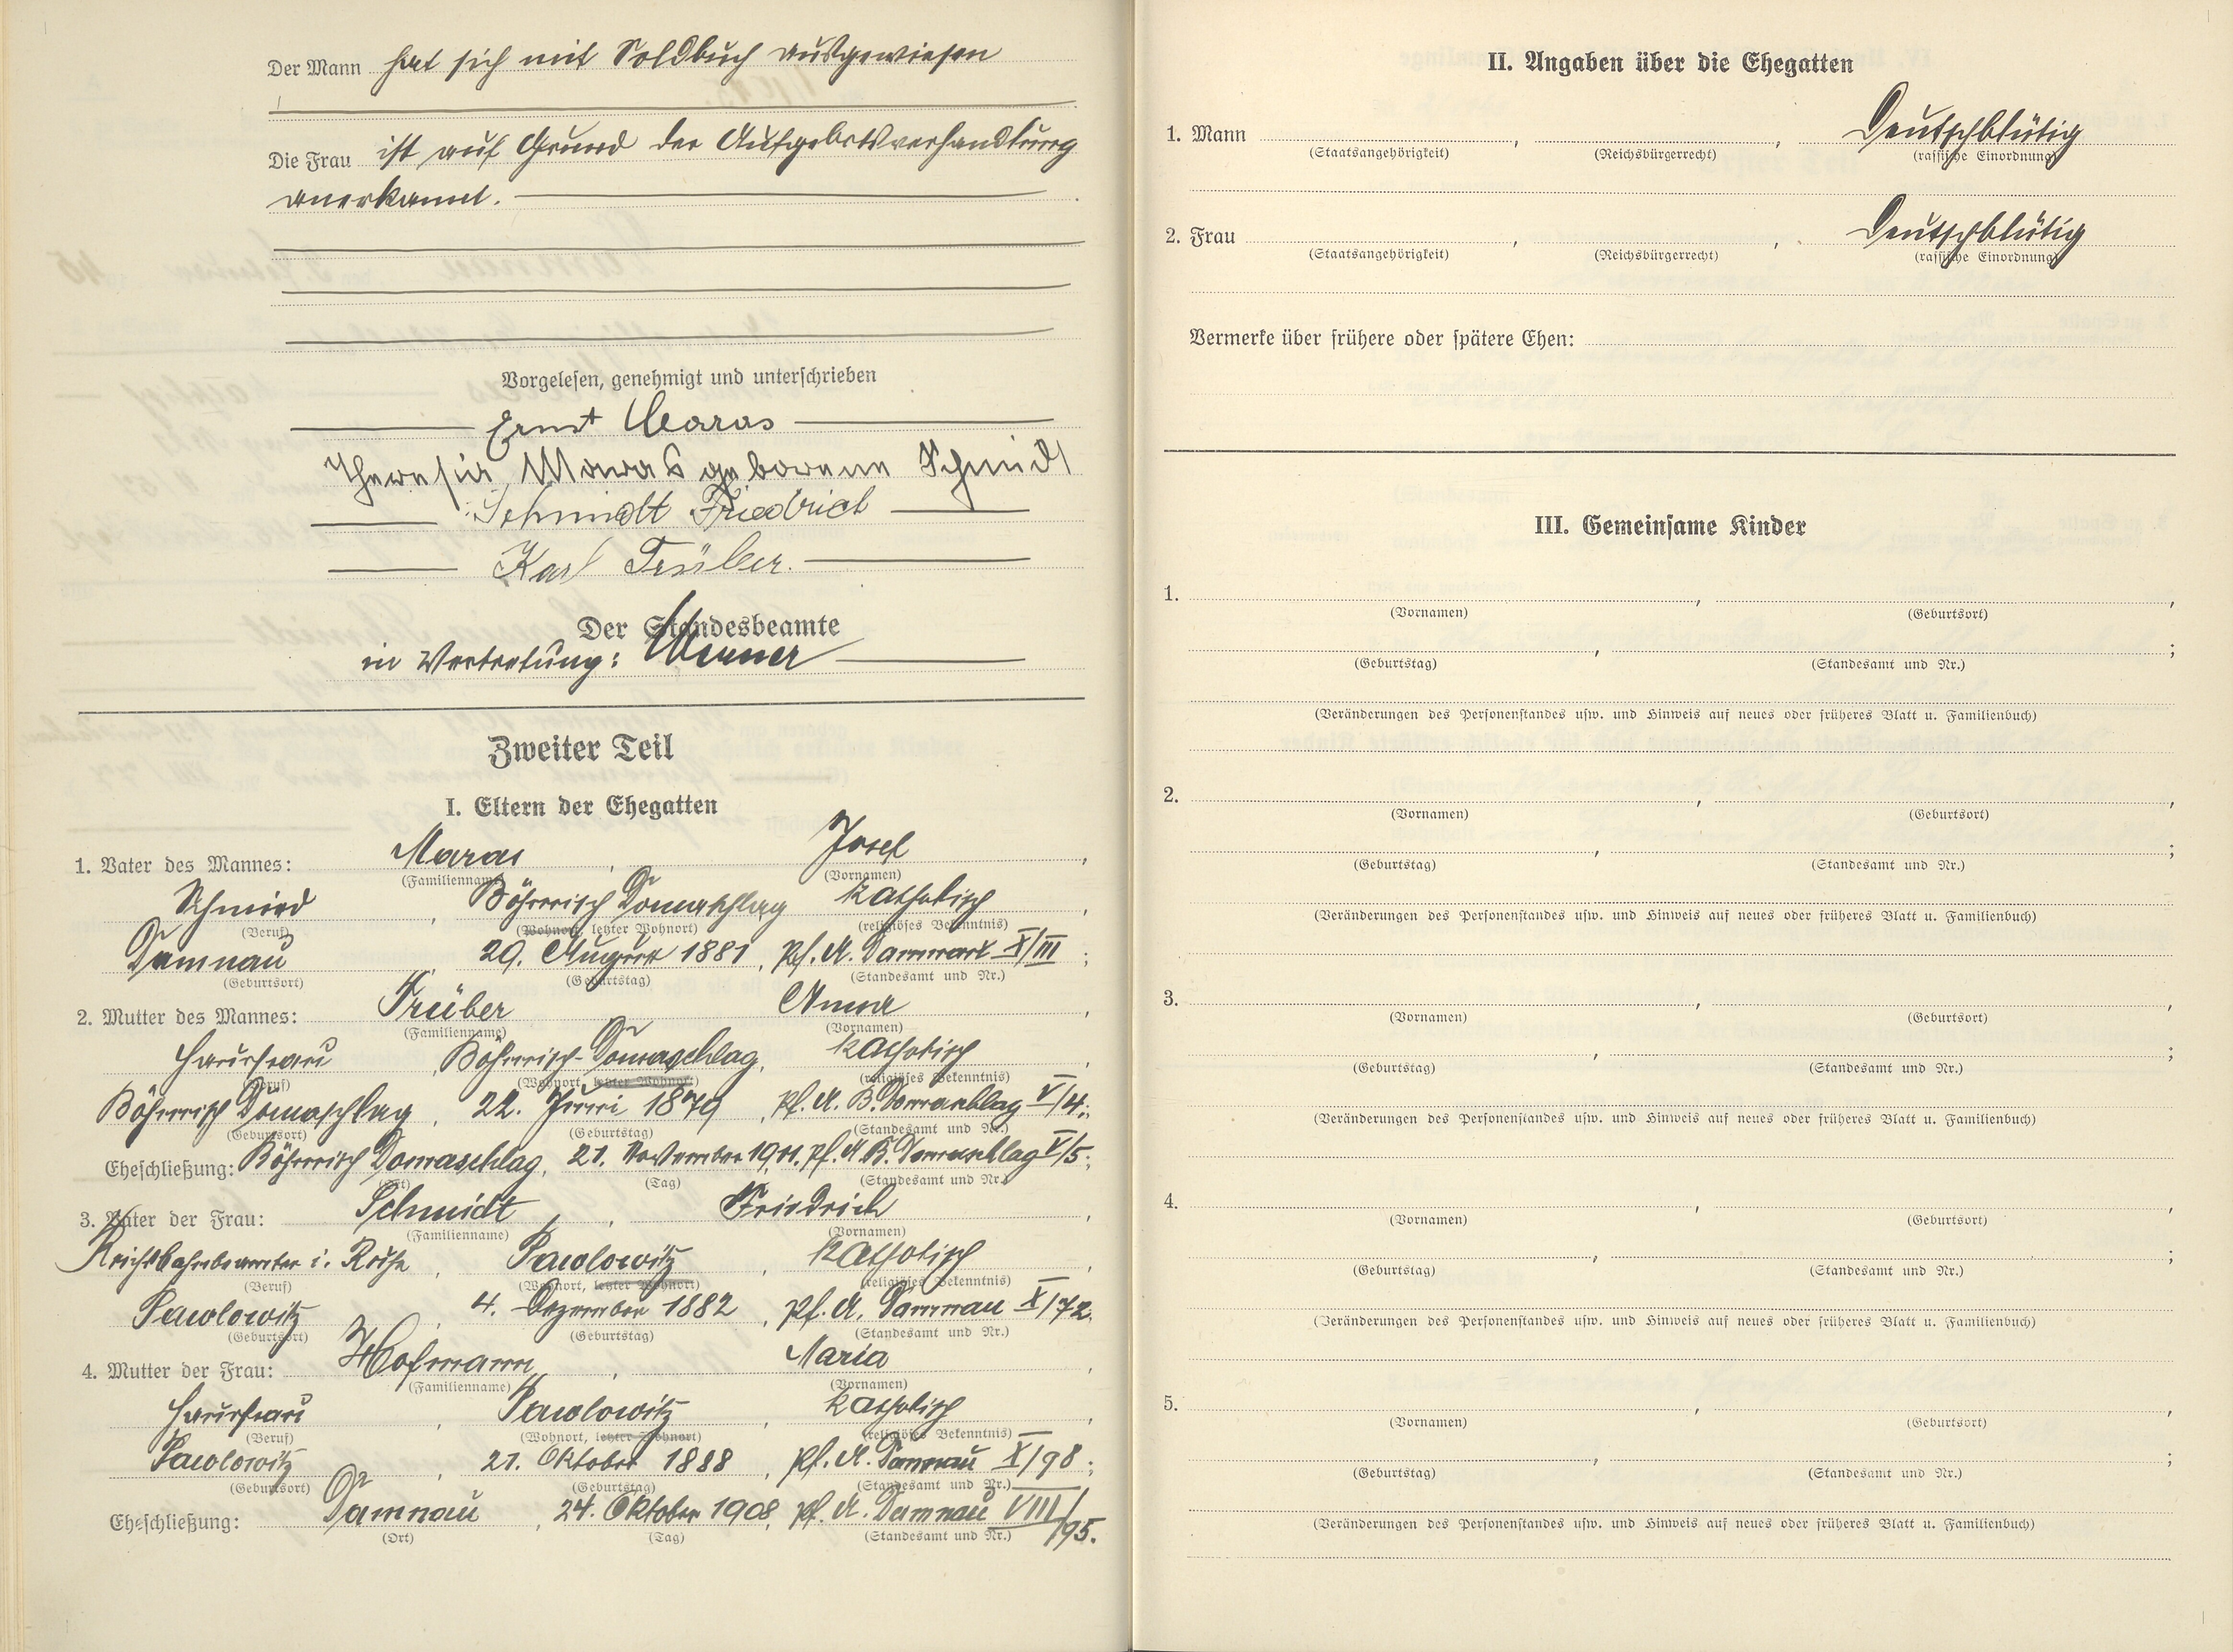 Der Mann hat sich mit Soldbuch ausgewiesen
Die Frau ist auf Grund der Aufgebotsverhandlung
anerkannt.
Vorgelesen, genehmigt und unterschrieben
Ernst Maras
Theresia Maras geborene Schmidt
Schmidt Friedrich
Karl Trüber.
Der Standesbeamte
in Vertretung: Werner
Zweiter Teil
I. Eltern der Ehegatten
1. Vater des Mannes: Maras, Josef,
(Familienname) (Vornamen)
Schmied, Böhmisch Domaschlag katholisch,
(Beruf) (Wohnort, letzter Wohnort) (religiöses Bekenntnis)
Damnau, 29. August 1881, Pf. A. Damnau X/III;
(Geburtsort) (Geburtstag) (Standesamt und Nr.)
2. Mutter des Mannes: Trüber Anna,
(Familienname) (Vornamen)
Hausfrau, Böhmisch-Domaschlag, katholisch,
(Beruf) (Wohnort, letzter Wohnort) (religiöses Bekenntnis)
Böhmisch Domaschlag, 22. Juni 1879, Pf. A. B. Domaschlag V/4;
(Geburtsort) (Geburtstag) (Standesamt und Nr.)
Eheschließung: Böhmisch Domaschlag, 21. November 1911. Pf. A B. Domaschlag V/5;
(Ort) (Tag) (Standesamt und Nr.)
3. Vater der Frau: Schmidt, Friedrich,
(Familienname) (Vornamen)
Reichsbahnbeamter i. Ruhe, Pawlowitz, katholisch,
(Beruf) (Wohnort, letzter Wohnort) (religiöses Bekenntnis)
Pawlowitz, 4. Dezember 1882, Pf. A. Damnau X/72;
(Geburtsort) (Geburtstag) (Standesamt und Nr.)
4. Mutter der Frau: Hofmann, Maria,
(Familienname) (Vornamen)
Hausfrau, Pawlowitz, katholisch,
(Beruf) (Wohnort, letzter Wohnort) (religiöses Bekenntnis)
Pawlowitz, 21. Oktober 1888, Pf. A. Damnau X/98;
(Geburtsort) (Geburtstag) (Standesamt und Nr.)
Eheschließung: Damnau, 24. Oktober 1908, Pf. A. Damnau VIII/95.
(Ort) (Tag) (Standesamt und Nr.)
II. Angaben über die Ehegatten
1. Mann , , Deutschblütig
(Staatsangehörigkeit) (Reichsbürgerrecht) (rassische Einordnung)
2. Frau , , Deutschblütig
(Staatsangehörigkeit) (Reichsbürgerrecht) (rassische Einordnung)
Vermerke über frühere oder spätere Ehen:
III. Gemeinsame Kinder
1. , ,
(Vornamen) (Geburtsort)
, ;
(Geburtstag) (Standesamt und Nr.)
(Veränderungen des Personenstandes usw. und Hinweis auf neues oder früheres Blatt u. Familienbuch)
2. , ,
(Vornamen) (Geburtsort)
, ;
(Geburtstag) (Standesamt und Nr.)
(Veränderungen des Personenstandes usw. und Hinweis auf neues oder früheres Blatt u. Familienbuch)
3. , ,
(Vornamen) (Geburtsort)
, ;
(Geburtstag) (Standesamt und Nr.)
(Veränderungen des Personenstandes usw. und Hinweis auf neues oder früheres Blatt u. Familienbuch)
4. , ,
(Vornamen) (Geburtsort)
, ;
(Geburtstag) (Standesamt und Nr.)
(Veränderungen des Personenstandes usw. und Hinweis auf neues oder früheres Blatt u. Familienbuch)
5. , ,
(Vornamen) (Geburtsort)
, ;
(Geburtstag) (Standesamt und Nr.)
(Veränderungen des Personenstandes usw. und Hinweis auf neues oder früheres Blatt u. Familienbuch)